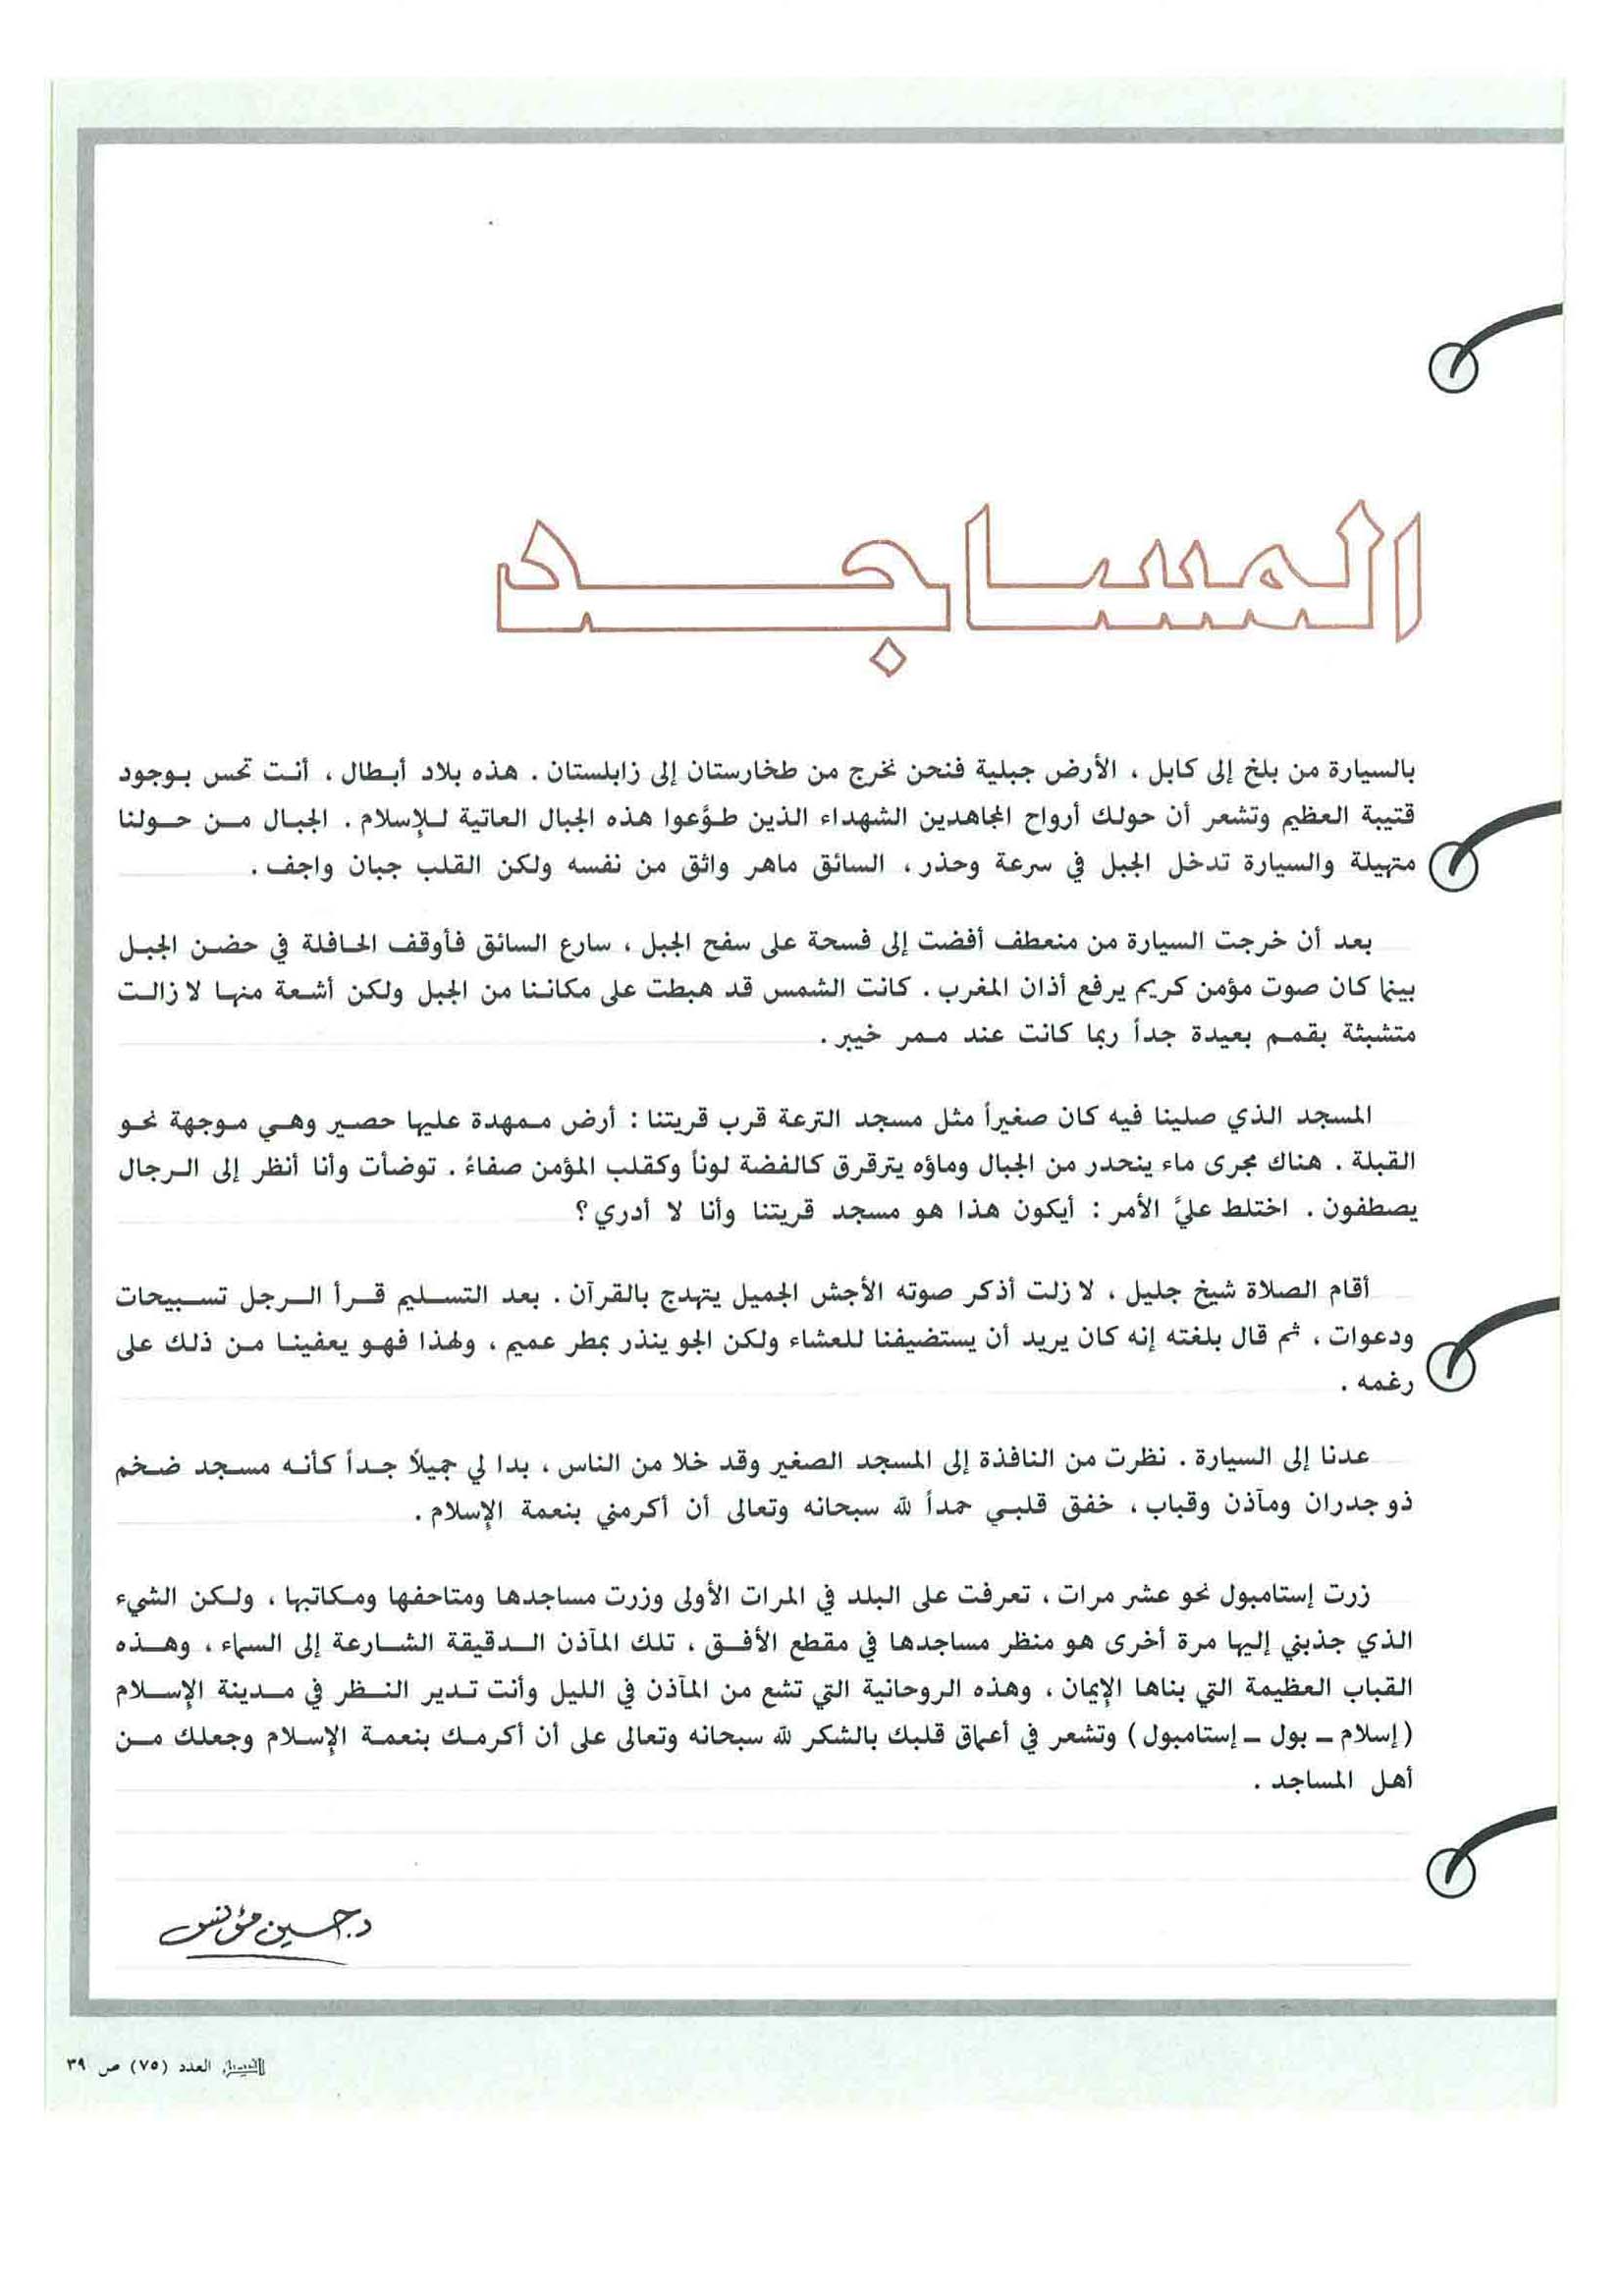 المساجد
بالسيارة من بلخ إلى كابل ، الأرض جبلية فنحن نخرج من طخارستان إلى زابلستان . هذه بلاد أبطال ، أنت تحس بوجود
قتيبة العظيم وتشعر أن حولك أرواح المجاهدين الشهداء الذين طوَّعوا هذه الجبال العاتية للإسلام . الجبال من حولنا
متهيلة والسيارة تدخل الجبل في سرعة وحذر ، السائق ماهر واثق من نفسه ولكن القلب جبان واجف .
بعد أن خرجت السيارة من منعطف أفضت إلى فسحة على سفح الجبل ، سارع السائق فأوقف الحافلة في حضن الجبل
بينما كان صوت مؤمن كريم يرفع أذان المغرب . كانت الشمس قد هبطت على مكاننا من الجبل ولكن أشعة منها لا زالت
متشبثة بقمم بعيدة جداً ربما كانت عند ممر خيبر .
المسجد الذي صلينا فيه كان صغيراً مثل مسجد الترعة قرب قريتنا : أرض ممهدة عليها حصير وهي موجهة نحو
القبلة . هناك مجرى ماء ينحدر من الجبال وماؤه يترقرق كالفضة لوناً وكقلب المؤمن صفاءً . توضأت وأنا أنظر إلى الرجال
يصطفون . اختلط عليَّ الأمر : أيكون هذا هو مسجد قريتنا وأنا لا أدري ؟
أقام الصلاة شيخ جليل ، لا زلت أذكر صوته الأجش الجميل يتهدج بالقرآن . بعد التسليم قرأ الرجل تسبيحات
ودعوات ، ثم قال بلغته إنه كان يريد أن يستضيفنا للعشاء ولكن الجو ينذر بمطر عميم ، ولهذا فهو يعفينا من ذلك على
رغمه .
عدنا إلى السيارة . نظرت من النافذة إلى المسجد الصغير وقد خلا من الناس ، بدا لي جميلاً جداً كأنه مسجد ضخم
ذو جدران ومآذن وقباب ، خفق قلبي حمداً لله سبحانه وتعالى أن أكرمني بنعمة الإسلام .
زرت إستامبول نحو عشر مرات ، تعرفت على البلد في المرات الأولى وزرت مساجدها ومتاحفها ومكاتبها ، ولكن الشيء
الذي جذبني إليها مرة أخرى هو منظر مساجدها في مقطع الأفق ، تلك المآذن الدقيقة الشارعة إلى السماء ، وهذه
القباب العظيمة التي بناها الإيمان ، وهذه الروحانية التي تشع من المآذن في الليل وأنت تدير النظر في مدينة الإسلام
(إسلام ــ بول ــ إستامبول) وتشعر في أعماق قلبك بالشكر لله سبحانه وتعالى على أن أكرمك بنعمة الإسلام وجعلك من
أهل المساجد .
د. حسين مؤنس
الفيصل العدد (٧٥) ص ٣٩